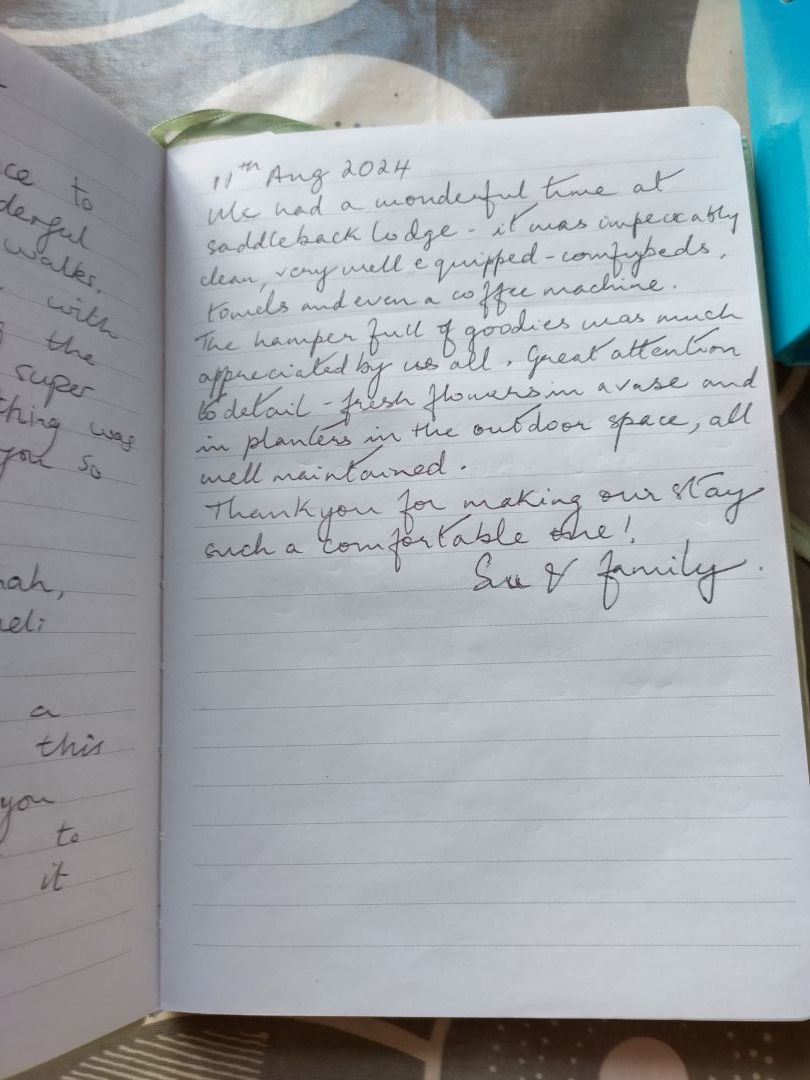 ce to
derful
walks.
with
the
super
thing was
you so
nah,
a
this
you
to
it
11th Aug 2024
We had a wonderful time at
saddleback lodge - it was impeccably
clean, very well equipped - comfy beds,
towels and even a coffee machine.
The hamper full of goodies was much
appreciated by us all. Great attention
to detail - fresh flowers in a vase and
in planters in the outdoor space, all
well maintained.
Thank you for making our stay
such a comfortable one!
Sue & family.